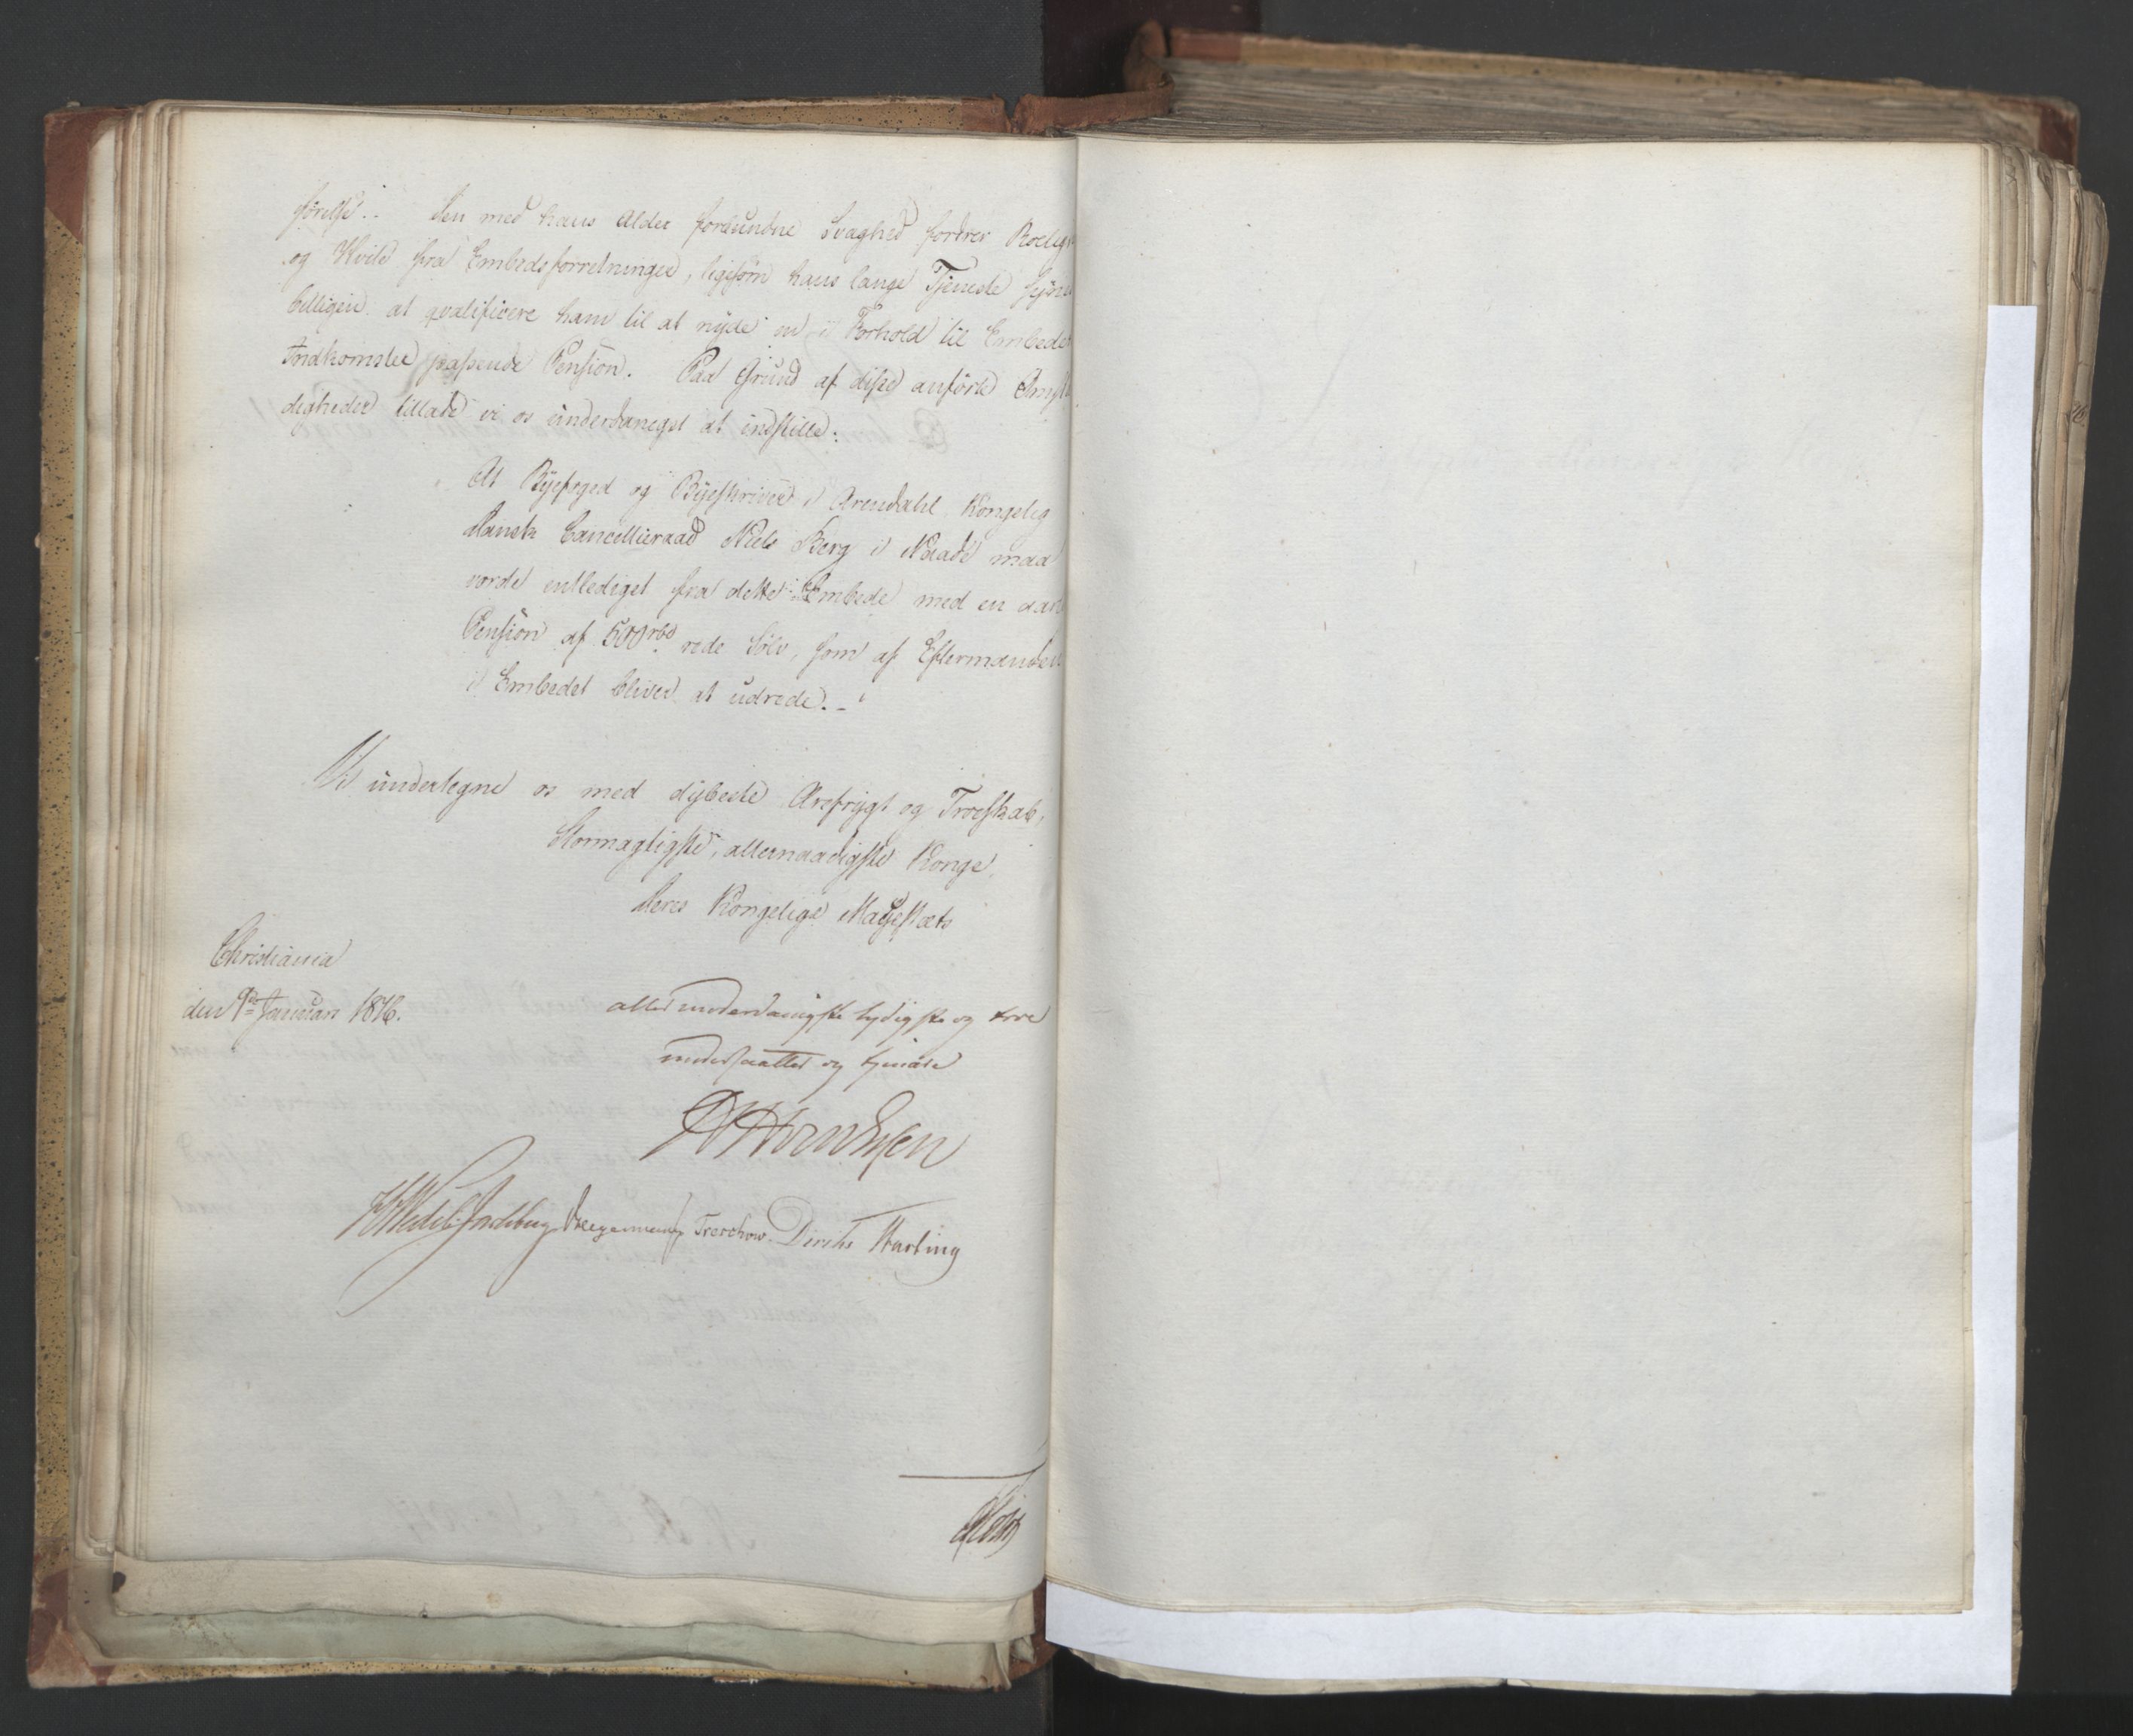 førelse. Den med hans Alder forbundne Svaghed fordrer Roelig
og Hvile fra Embedsforretninger, ligesom hans lange Tjeneste synes
billigen at qvalificere ham til at nyde en i Forhold til Embedets
Indkomster passende Pension. Paa Grund af disse anførte Omstæn
digheder tillade vi os underdanigst at indstille:
At Byefoged og Byeskriver i Arendahl Kongelig
dansk Cancellieraad Niels Berg i Naade maa
vorde entlediget fra dette Embede med en aarl
Pension af 500 rbd rede Sølv, som af Eftermanden
i Embedet bliver at udrede.
Vi undertegne os med dybeste Ærefrygt og Troeskab,
Stormægtigste, allernaadigste Konge,
Deres Kongelige Majestæts
Christiania
den 9de Januari 1816.
allerunderdanigste lydigste og troe
undersaatter og tjenere
HWedel Jarlsberg Treschow Diriks